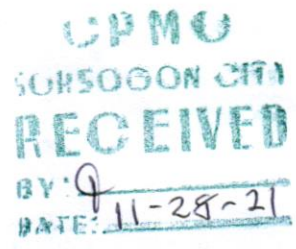 CPMO
SORSOGON CITY
RECEIVED
BY:
DATE: 11-28-21